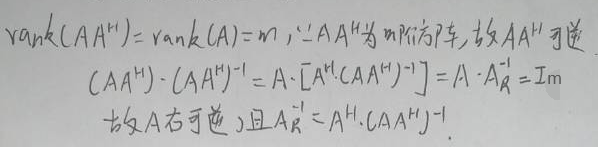 rank(AAᴴ)=rank(A)=m，∵AAᴴ为m阶方阵，故AAᴴ可逆
(AAᴴ)·(AAᴴ)⁻¹=A·[Aᴴ·(AAᴴ)⁻¹]=A·A_R⁻¹=Im
故A右可逆，且A_R⁻¹=Aᴴ·(AAᴴ)⁻¹.